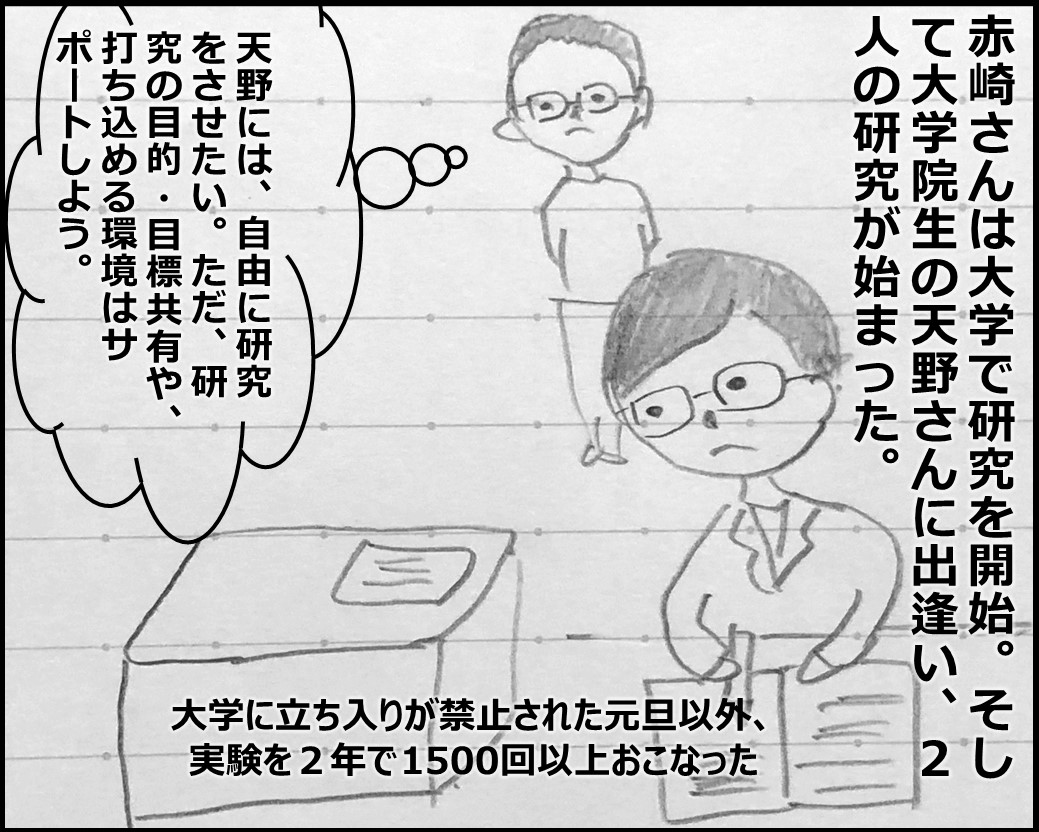 赤崎さんは大学で研究を開始。そし
て大学院生の天野さんに出逢い、２
人の研究が始まった。
天野には、自由に研究
をさせたい。ただ、研
究の目的・目標共有や、
打ち込める環境はサ
ポートしよう。
大学に立ち入りが禁止された元旦以外、
実験を２年で1500回以上おこなった